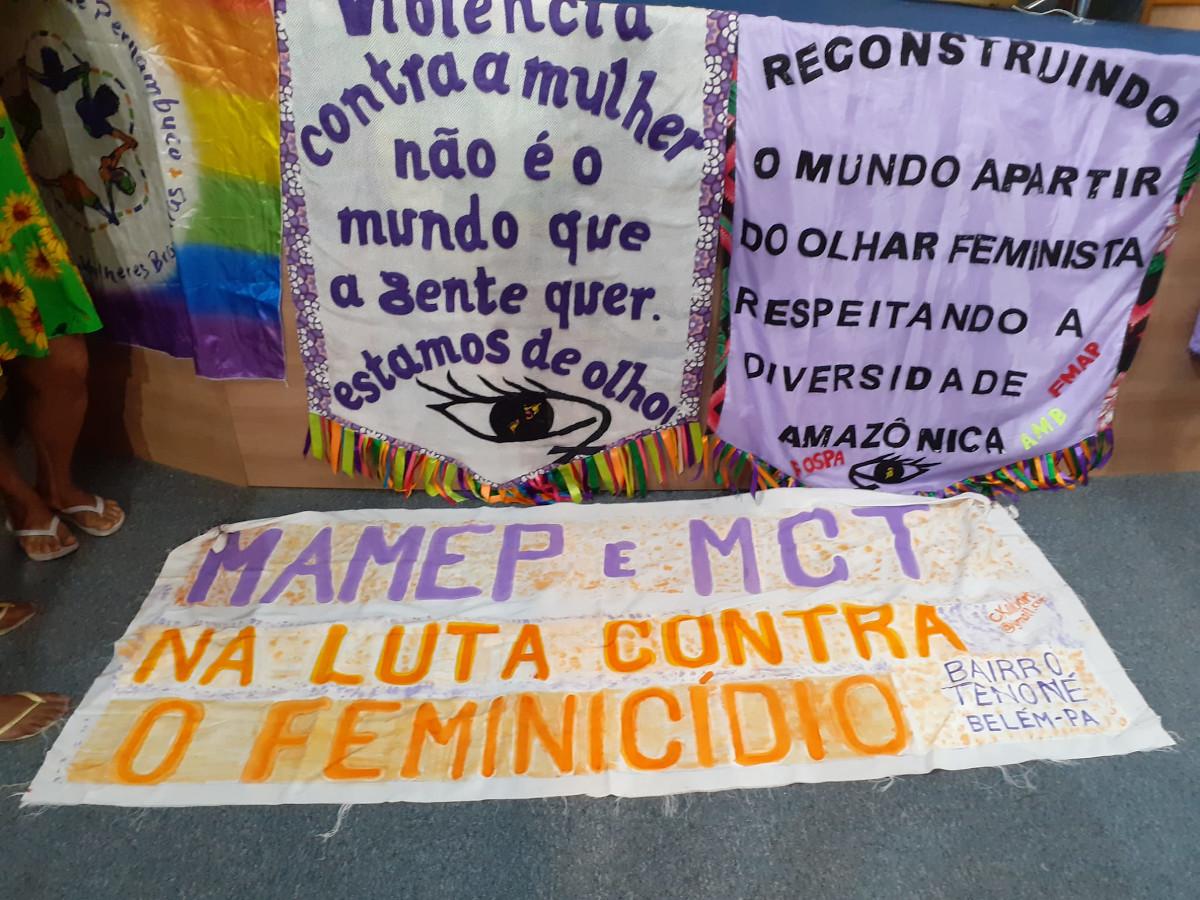 de Pernambuco
Mulheres Bras
Violência
contra a mulher
não é o
mundo que
a gente quer.
estamos de olho!
RECONSTRUINDO
O MUNDO APARTIR
DO OLHAR FEMINISTA
RESPEITANDO A
DIVERSIDADE
AMAZÔNICA
FMAP
AMB
FOSPA
MAMEP E MCT
NA LUTA CONTRA
O FEMINICÍDIO
@gmail.com
BAIRRO
TENONÉ
BELÉM-PA